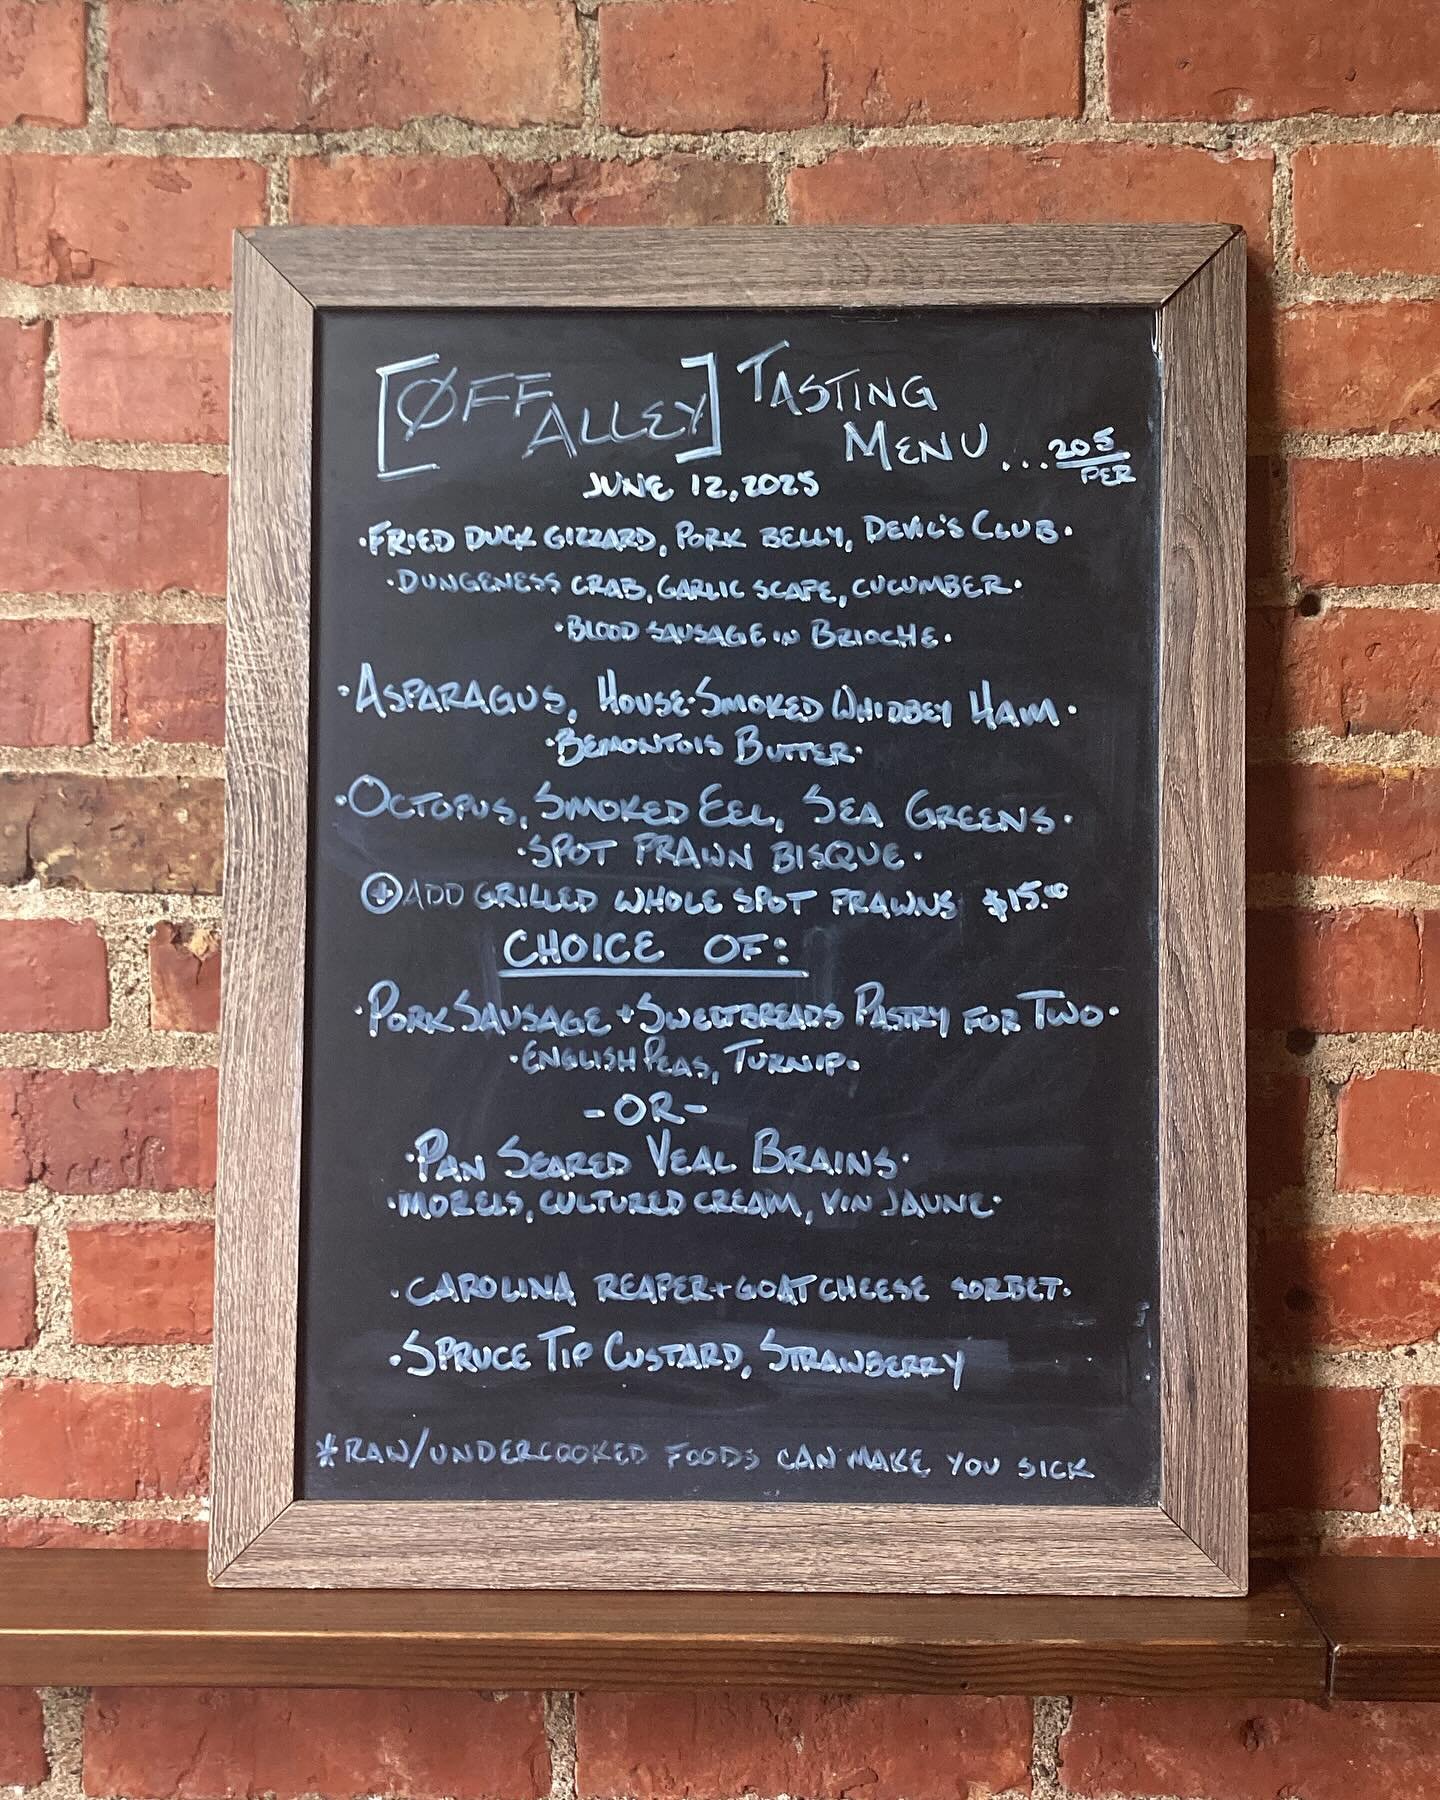 [ØFF ALLEY] TASTING MENU ... 205 PER
JUNE 12, 2025
·FRIED DUCK GIZZARD, PORK BELLY, DEVIL'S CLUB·
·DUNGENESS CRAB, GARLIC SCAPE, CUCUMBER·
·BLOOD SAUSAGE IN BRIOCHE·
·ASPARAGUS, HOUSE-SMOKED WHIDBEY HAM·
·BEMONTOIS BUTTER·
·OCTOPUS, SMOKED EEL, SEA GREENS·
·SPOT PRAWN BISQUE·
⊕ADD GRILLED WHOLE SPOT PRAWNS $15.00
CHOICE OF:
·PORK SAUSAGE + SWEETBREADS PASTRY FOR TWO·
·ENGLISH PEAS, TURNIP·
-OR-
·PAN SEARED VEAL BRAINS·
·MORELS, CULTURED CREAM, VIN JAUNE·
·CAROLINA REAPER + GOAT CHEESE SORBET·
·SPRUCE TIP CUSTARD, STRAWBERRY
*RAW/UNDERCOOKED FOODS CAN MAKE YOU SICK